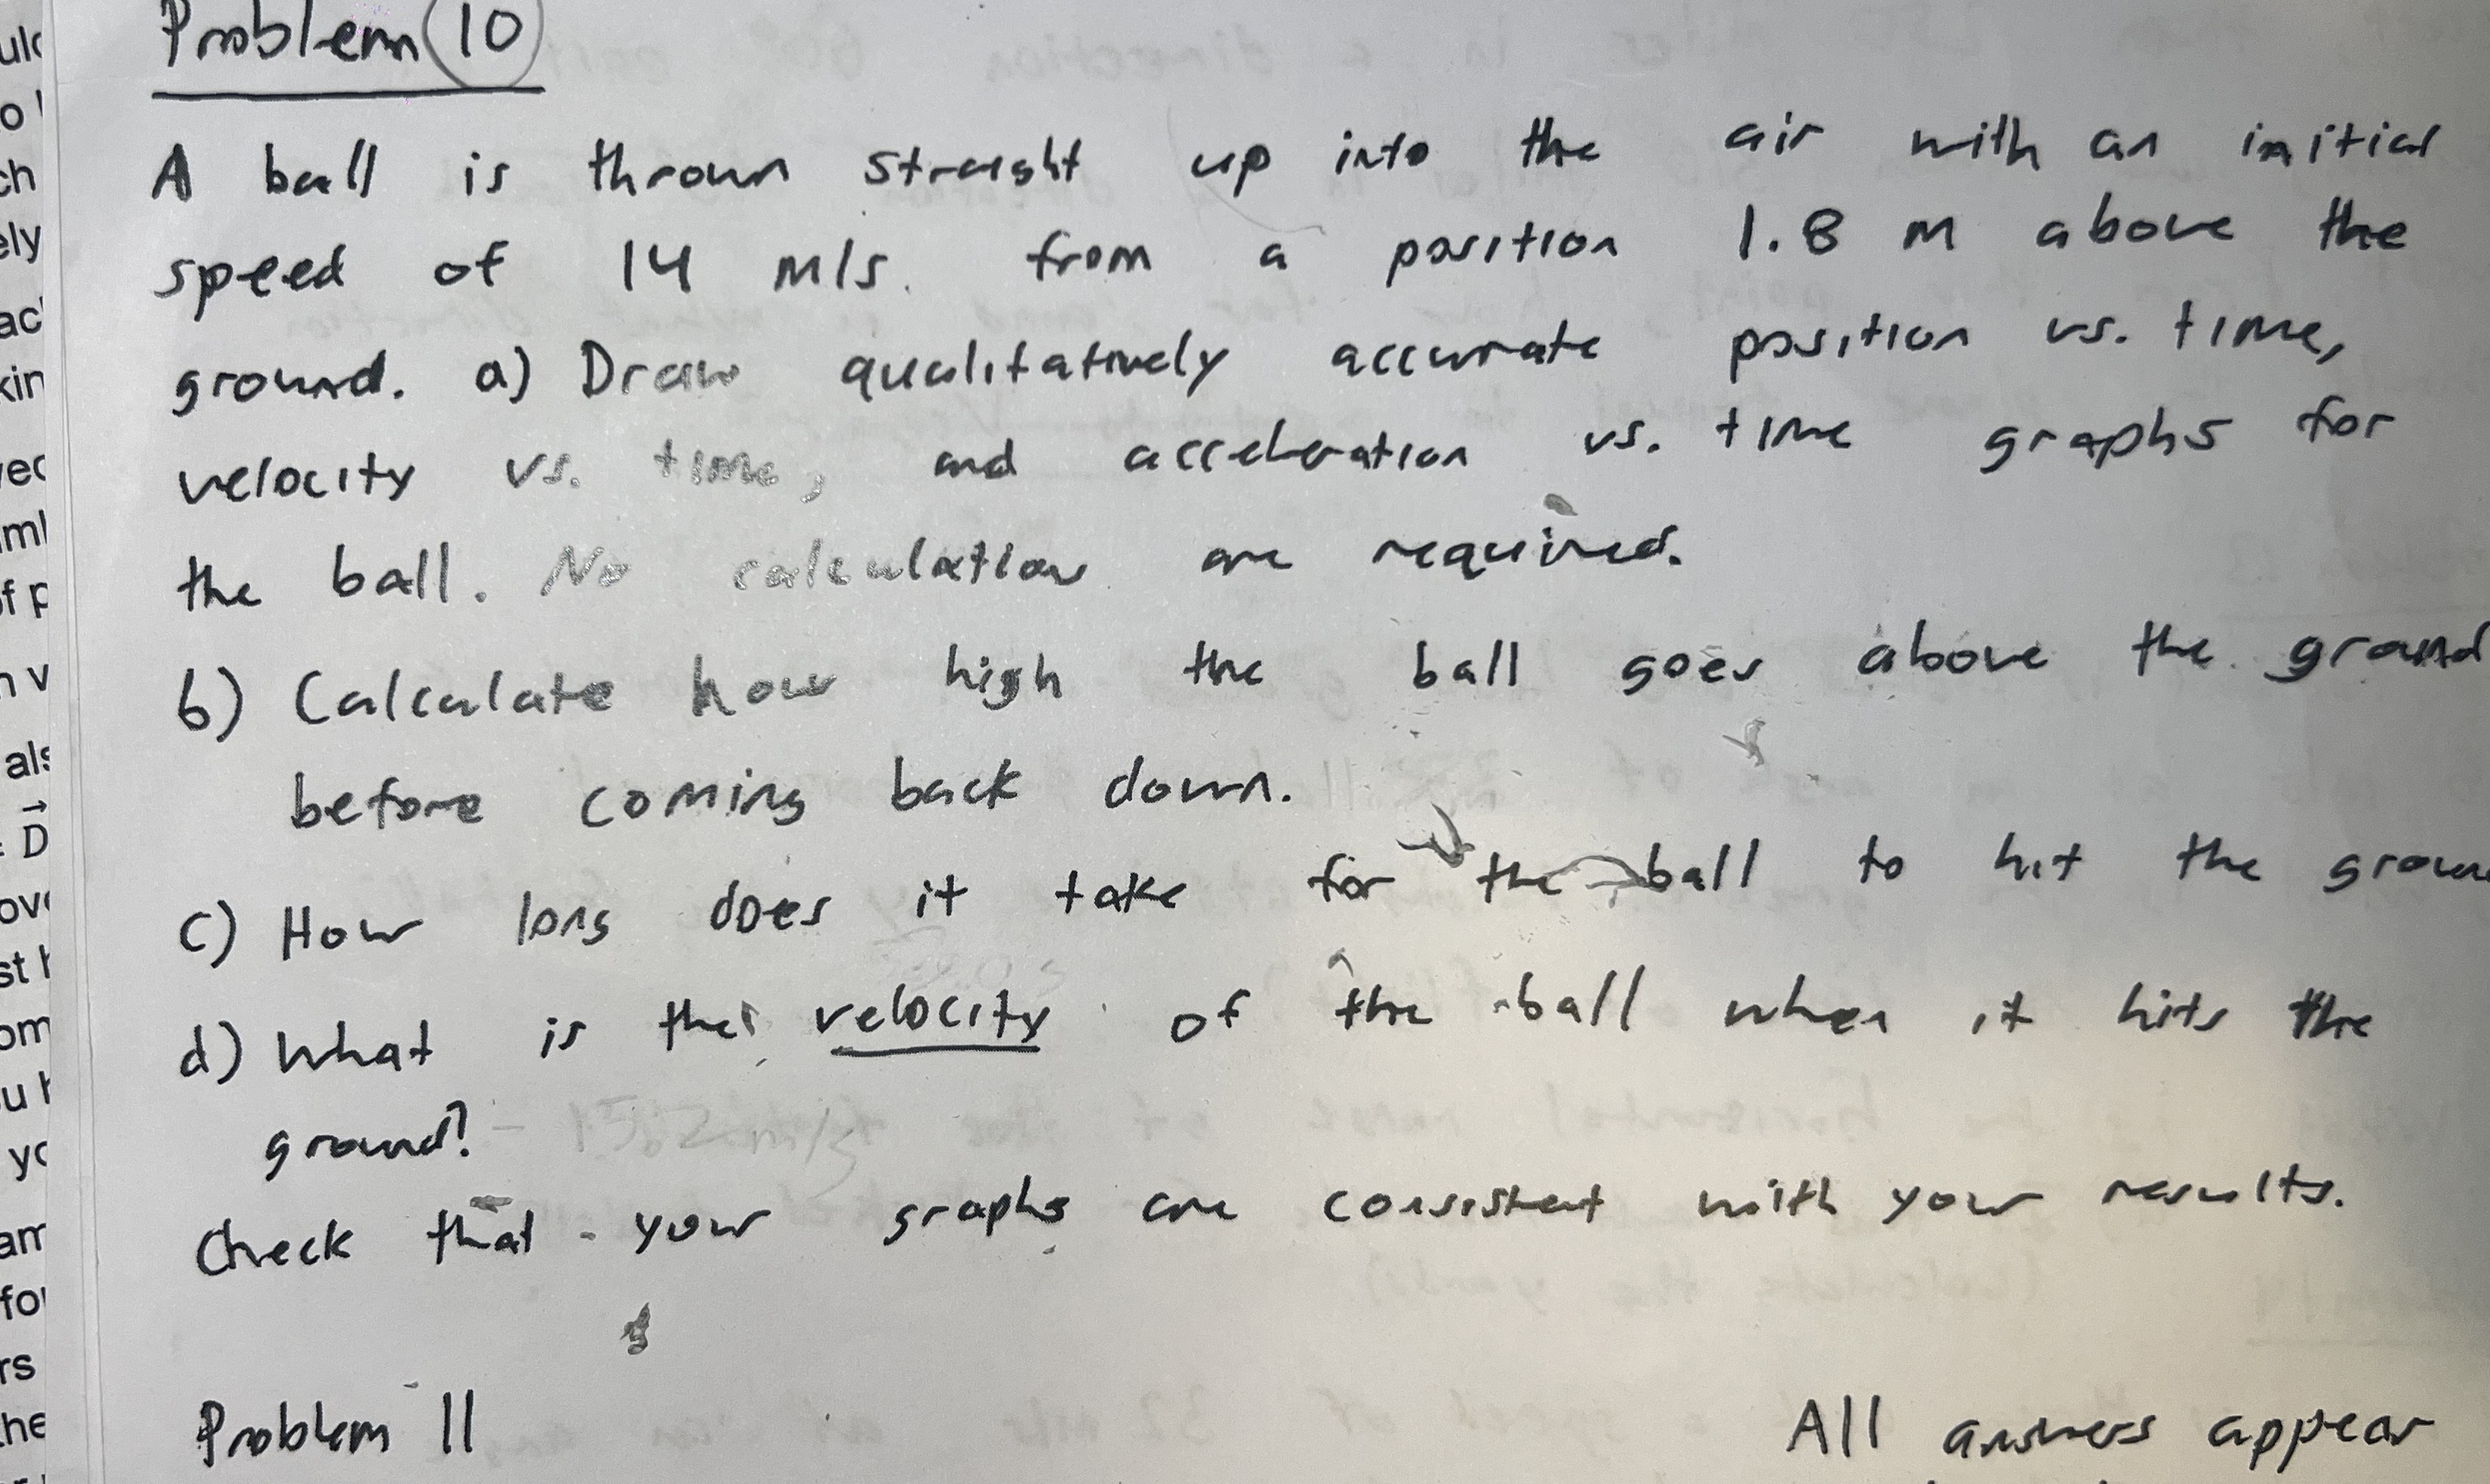 Problem 10
A ball is thrown straight up into the air with an initial
speed of 14 m/s. from a position 1.8 m above the
ground. a) Draw qualitatively accurate position vs. time,
velocity vs. time, and acceleration vs. time graphs for
the ball. No calculation are required.
b) Calculate how high the ball goes above the ground
before coming back down.
c) How long does it take for the ball to hit the groun
d) What is the velocity of the ball when it hits the
ground? - 15.2 m/s
Check that your graphs are consistent with your results.
Problem 11
All answers appear